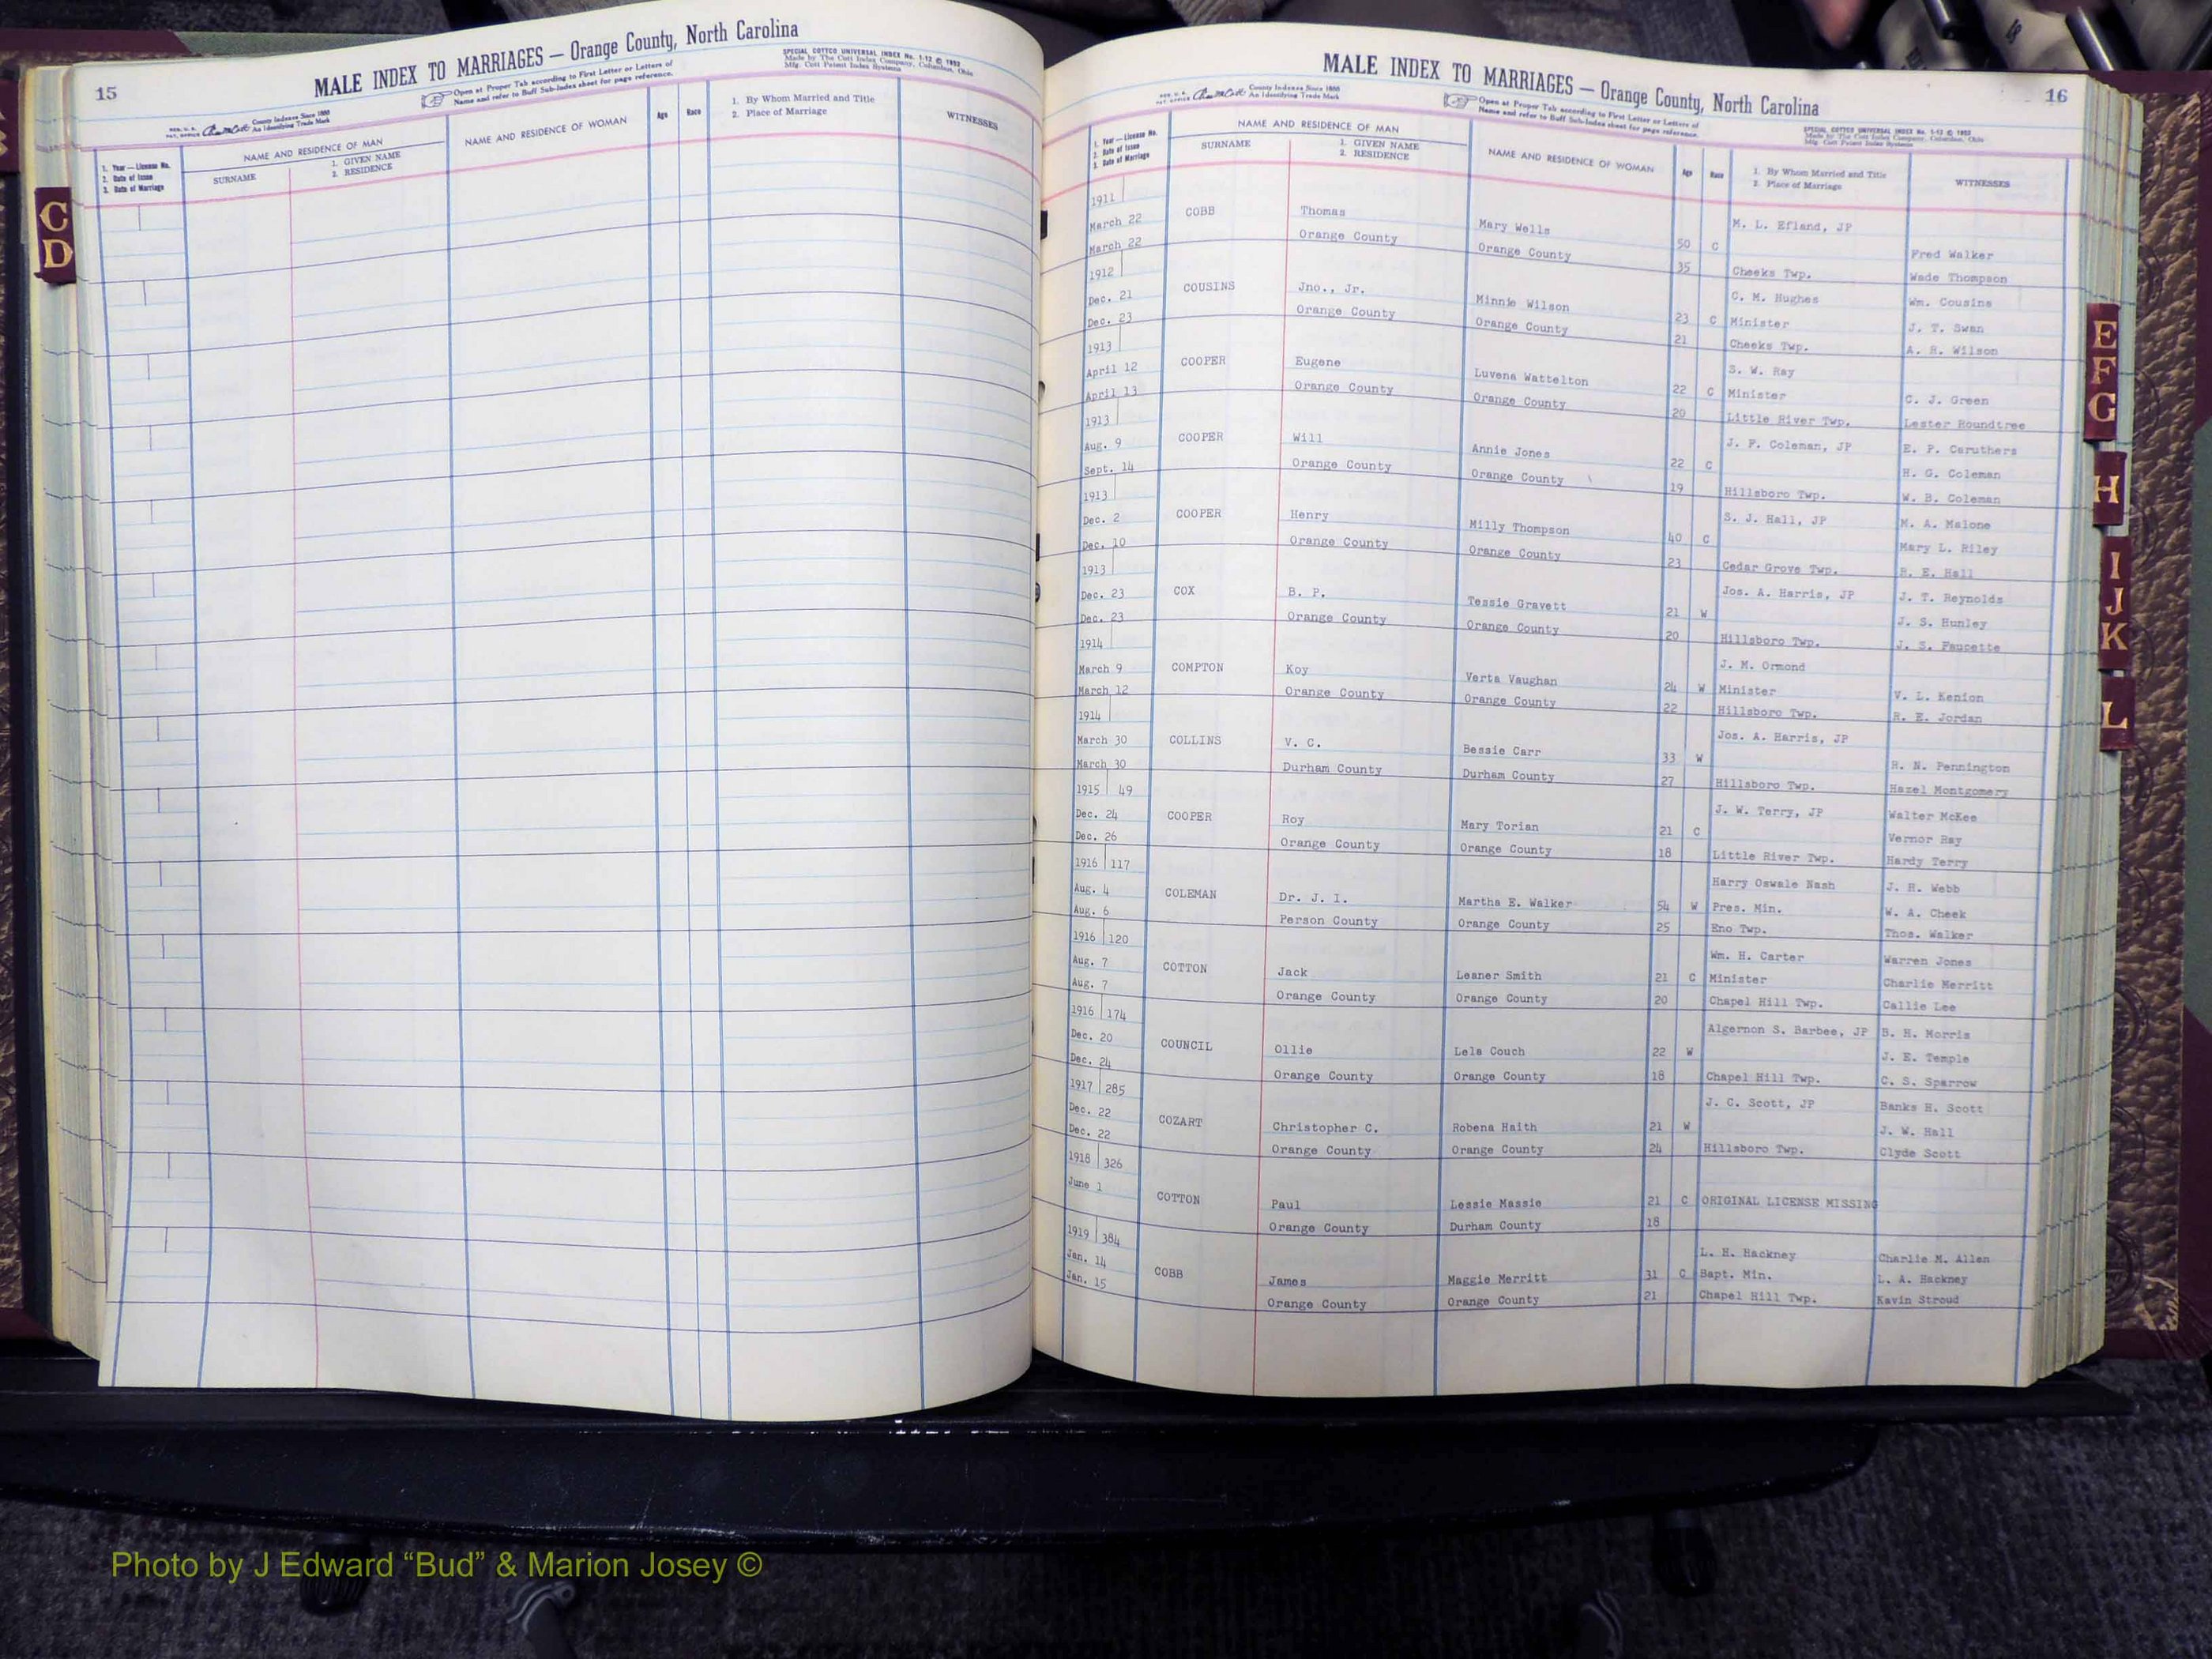 15
MALE INDEX TO MARRIAGES — Orange County, North Carolina
Open at Proper Tab according to First Letter or Letters of
Name and refer to Buff Sub-Index sheet for page reference.
SPECIAL COTTCO UNIVERSAL INDEX No. 1-12 © 1952
Made by The Cott Index Company, Columbus, Ohio
Mfg. Cott Patent Index Systems
REG. U. S. PAT. OFFICE
County Indexes Since 1888
An Identifying Trade Mark
1. Year — License No.
2. Date of Issue
3. Date of Marriage
NAME AND RESIDENCE OF MAN
SURNAME
1. GIVEN NAME
2. RESIDENCE
NAME AND RESIDENCE OF WOMAN
Age
Race
1. By Whom Married and Title
2. Place of Marriage
WITNESSES
C
D
16
MALE INDEX TO MARRIAGES — Orange County, North Carolina
REG. U. S. PAT. OFFICE
County Indexes Since 1888
An Identifying Trade Mark
Open at Proper Tab according to First Letter or Letters of
Name and refer to Buff Sub-Index sheet for page reference.
SPECIAL COTTCO UNIVERSAL INDEX No. 1-12 © 1952
Made by The Cott Index Company, Columbus, Ohio
Mfg. Cott Patent Index Systems
1. Year — License No.
2. Date of Issue
3. Date of Marriage
NAME AND RESIDENCE OF MAN
SURNAME
1. GIVEN NAME
2. RESIDENCE
NAME AND RESIDENCE OF WOMAN
Age
Race
1. By Whom Married and Title
2. Place of Marriage
WITNESSES
1911
March 22 COBB Thomas Mary Wells 50 C M. L. Efland, JP Fred Walker
March 22 Orange County Orange County 35 Cheeks Twp. Wade Thompson
1912 C. M. Hughes Wm. Cousins
Dec. 21 COUSINS Jno., Jr. Minnie Wilson 23 C Minister J. T. Swan
Dec. 23 Orange County Orange County 21 Cheeks Twp. A. H. Wilson
1913 S. W. Ray
April 12 COOPER Eugene Luvena Wattelton 22 C Minister C. J. Green
April 13 Orange County Orange County 20 Little River Twp. Lester Roundtree
1913 J. P. Coleman, JP E. P. Caruthers
Aug. 9 COOPER Will Annie Jones 22 C H. G. Coleman
Sept. 14 Orange County Orange County 19 Hillsboro Twp. W. B. Coleman
1913 S. J. Hall, JP M. A. Malone
Dec. 2 COOPER Henry Milly Thompson 40 C Mary L. Riley
Dec. 10 Orange County Orange County 23 Cedar Grove Twp. R. E. Hall
1913 Jos. A. Harris, JP J. T. Reynolds
Dec. 23 COX B. P. Tessie Gravett 21 W J. S. Hunley
Dec. 23 Orange County Orange County 20 Hillsboro Twp. J. S. Faucette
1914 J. M. Ormond
March 9 COMPTON Koy Verta Vaughan 24 W Minister V. L. Kenion
March 12 Orange County Orange County 22 Hillsboro Twp. R. E. Jordan
1914 Jos. A. Harris, JP
March 30 COLLINS V. C. Bessie Carr 33 W H. N. Pennington
March 30 Durham County Durham County 27 Hillsboro Twp. Hazel Montgomery
1915 49 J. W. Terry, JP Walter McKee
Dec. 24 COOPER Roy Mary Torian 21 C Vernor Ray
Dec. 26 Orange County Orange County 18 Little River Twp. Hardy Terry
1916 117 Harry Oswale Nash J. H. Webb
Aug. 4 COLEMAN Dr. J. I. Martha E. Walker 54 W Pres. Min. W. A. Cheek
Aug. 6 Person County Orange County 25 Eno Twp. Thos. Walker
1916 120 Wm. H. Carter Warren Jones
Aug. 7 COTTON Jack Leaner Smith 21 C Minister Charlie Merritt
Aug. 7 Orange County Orange County 20 Chapel Hill Twp. Callie Lee
1916 174 Algernon S. Barbee, JP B. H. Morris
Dec. 20 COUNCIL Ollie Lela Couch 22 W J. E. Temple
Dec. 24 Orange County Orange County 18 Chapel Hill Twp. C. S. Sparrow
1917 285 J. C. Scott, JP Banks H. Scott
Dec. 22 COZART Christopher C. Robena Haith 21 W J. W. Hall
Dec. 22 Orange County Orange County 24 Hillsboro Twp. Clyde Scott
1918 326
June 1 COTTON Paul Lessie Massie 21 C ORIGINAL LICENSE MISSING
Orange County Durham County 18
1919 384 L. H. Hackney Charlie M. Allen
Jan. 14 COBB James Maggie Merritt 31 C Bapt. Min. L. A. Hackney
Jan. 15 Orange County Orange County 21 Chapel Hill Twp. Kavin Stroud
E
F
G
H
I
J
K
L
Photo by J Edward “Bud” & Marion Josey ©